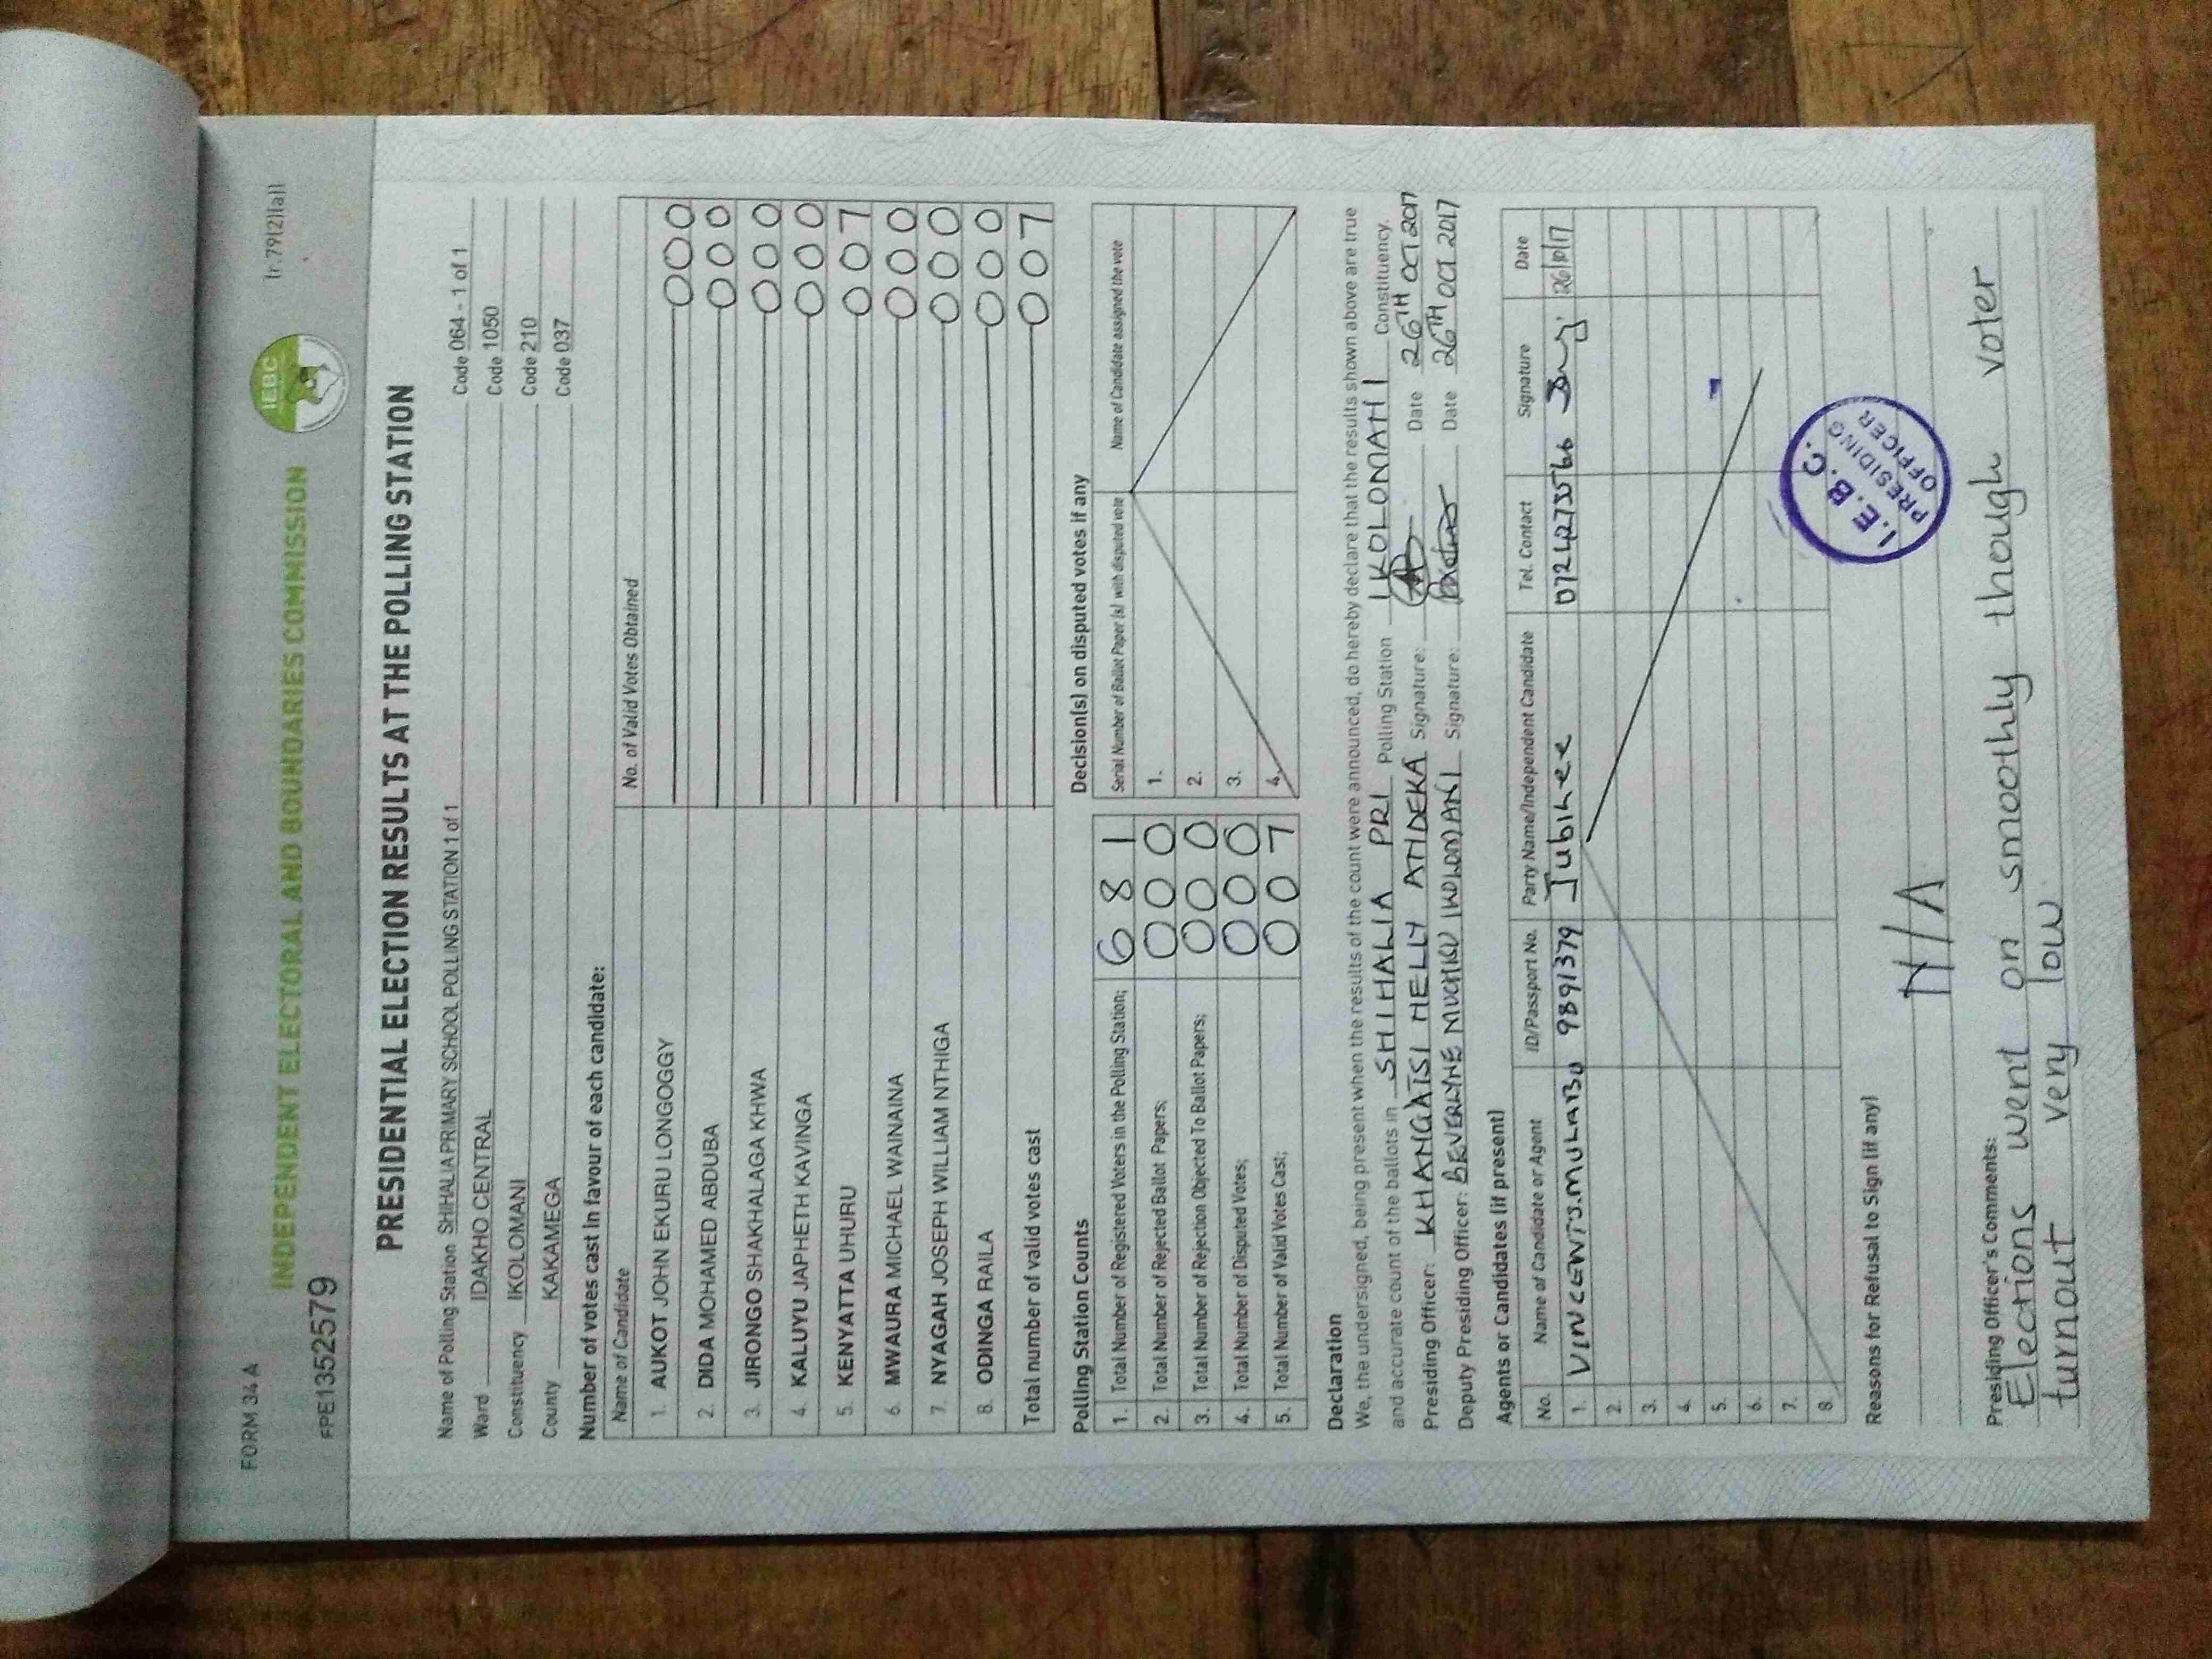 FORM 34 A
(r.79(2)(a))
INDEPENDENT ELECTORAL AND BOUNDARIES COMMISSION
IEBC
FPE1352579
PRESIDENTIAL ELECTION RESULTS AT THE POLLING STATION
Name of Polling Station SHIHALIA PRIMARY SCHOOL POLLING STATION 1 of 1 Code 064 - 1 of 1
Ward IDAKHO CENTRAL Code 1050
Constituency IKOLOMANI Code 210
County KAKAMEGA Code 037
Number of votes cast in favour of each candidate:
Name of Candidate No. of Valid Votes Obtained
1. AUKOT JOHN EKURU LONGOGGY 000
2. DIDA MOHAMED ABDUBA 000
3. JIRONGO SHAKHALAGA KHWA 000
4. KALUYU JAPHETH KAVINGA 000
5. KENYATTA UHURU 007
6. MWAURA MICHAEL WAINAINA 000
7. NYAGAH JOSEPH WILLIAM NTHIGA 000
8. ODINGA RAILA 000
Total number of valid votes cast 007
Polling Station Counts
1. Total Number of Registered Voters in the Polling Station; 681
2. Total Number of Rejected Ballot Papers; 000
3. Total Number of Rejection Objected To Ballot Papers; 000
4. Total Number of Disputed Votes; 000
5. Total Number of Valid Votes Cast; 007
Decision(s) on disputed votes if any
Serial Number of Ballot Paper (s) with disputed vote Name of Candidate assigned the vote
1.
2.
3.
4.
Declaration
We, the undersigned, being present when the results of the count were announced, do hereby declare that the results shown above are true
and accurate count of the ballots in SHIHALIA PRI Polling Station IKOLOMANI Constituency.
Presiding Officer: KHANGATSI HELLY ATIDEKA Signature: Date 26TH OCT 2017
Deputy Presiding Officer: BEVERLYNE MUCHISU IKOLOMANI Signature: Date 26TH OCT 2017
Agents or Candidates (if present)
No. Name of Candidate or Agent ID/Passport No. Party Name/Independent Candidate Tel. Contact Signature Date
1. VINCENT S. 9891379 Jubilee 26/10/17
2.
3.
4.
5.
6.
7.
8.
I.E.B.C.
PRESIDING
OFFICER
Reasons for Refusal to Sign (if any)
N/A
Presiding Officer's Comments:
Elections went on smoothly though voter
turnout very low